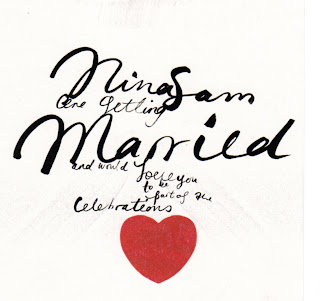 Nina Sam
are getting
Married
and would love you
to be
a part of the
Celebrations